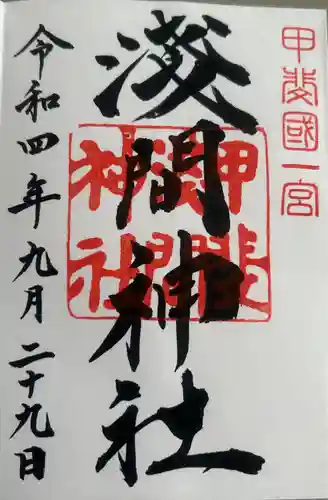 甲斐國一宮
淺間神社
甲斐
淺間
神社
令和四年九月二十九日